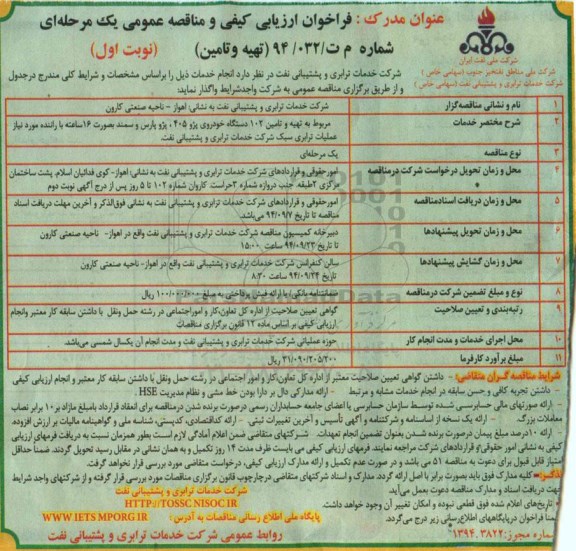 عنوان مدرک : فراخوان ارزیابی کیفی و مناقصه عمومی یک مرحله‌ای
شماره م ت/۹۴/۰۳۲ (تهیه وتامین) (نوبت اول)
شرکت ملی نفت ایران
شرکت ملی مناطق نفتخیز جنوب (سهامی خاص)
شرکت خدمات ترابری و پشتیبانی نفت (سهامی خاص)
شرکت خدمات ترابری و پشتیبانی نفت در نظر دارد انجام خدمات ذیل را براساس مشخصات و شرایط کلی مندرج درجدول
و از طریق برگزاری مناقصه عمومی به شرکت واجدشرایط واگذار نماید:
۱ نام و نشانی مناقصه‌گزار شرکت خدمات ترابری و پشتیبانی نفت به نشانی: اهواز - ناحیه صنعتی کارون
۲ شرح مختصر خدمات مربوط به تهیه و تامین ۱۰۲ دستگاه خودروی پژو ۴۰۵ ، پژو پارس و سمند بصورت ۱۶ساعته با راننده مورد نیاز
عملیات ترابری سبک شرکت خدمات ترابری و پشتیبانی نفت.
۳ نوع مناقصه یک مرحله‌ای
۴ محل و زمان تحویل درخواست شرکت درمناقصه امورحقوقی و قراردادهای شرکت خدمات ترابری و پشتیبانی نفت به نشانی: اهواز- کوی فدائیان اسلام، پشت ساختمان
مرکزی ۲طبقه، جنب دروازه شماره ۳حراست کاروان شماره ۱۰۲ تا ۵ روز پس از درج آگهی نوبت دوم
۵ محل و زمان دریافت اسنادمناقصه امورحقوقی و قراردادهای شرکت خدمات ترابری و پشتیبانی نفت به نشانی فوق‌الذکر و آخرین مهلت دریافت اسناد
مناقصه تا تاریخ ۹۴/۰۹/۷ می‌باشد.
۶ محل و زمان تحویل پیشنهادها دبیرخانه کمیسیون مناقصه شرکت خدمات ترابری و پشتیبانی نفت واقع در اهواز- ناحیه صنعتی کارون
تا تاریخ ۹۴/۰۹/۲۳ ساعت ۱۵:۰۰
۷ محل و زمان گشایش پیشنهادها سالن کنفرانس شرکت خدمات ترابری و پشتیبانی نفت واقع در اهواز- ناحیه صنعتی کارون
تاریخ ۹۴/۰۹/۲۴ ساعت ۸:۳۰
۸ نوع و مبلغ تضمین شرکت درمناقصه ضمانتنامه بانکی/ یا ارائه فیش پرداختی به مبلغ ۱۰۰/۰۰۰/۰۰۰ ریال
۹ رتبه‌بندی و تعیین صلاحیت گواهی تعیین صلاحیت از اداره کل تعاون،کار و اموراجتماعی در رشته حمل ونقل با داشتن سابقه کار معتبر وانجام
ارزیابی کیفی بر اساس ماده ۱۲ قانون برگزاری مناقصات
۱۰ محل اجرای خدمات و مدت انجام کار حوزه عملیاتی شرکت خدمات ترابری و پشتیبانی نفت و مدت انجام آن یکسال شمسی می‌باشد.
۱۱ مبلغ برآورد کارفرما ۳۱/۰۹۰/۲۰۵/۲۰۰ ریال
شرایط مناقصه گران متقاضی: - داشتن گواهی تعیین صلاحیت معتبر از اداره کل تعاون،کار و امور اجتماعی در رشته حمل ونقل با داشتن سابقه کار معتبر و انجام ارزیابی کیفی
- داشتن تجربه کافی و حسن سابقه در انجام خدمات مشابه و مرتبط - ارائه مدارکی دال بر دارا بودن خط مشی و نظام مدیریت HSE
- ارائه صورتهای مالی حسابرسی شده توسط سازمان حسابرسی یا اعضای جامعه حسابداران رسمی درصورت برنده شدن درمناقصه برای انعقاد قرارداد بامبلغ مازاد بر۱۰ برابر نصاب
معاملات بزرگ - ارائه یک نسخه از اساسنامه و شرکتنامه و آگهی تأسیس و آخرین تغییرات ثبتی - ارائه کداقتصادی، کدپستی، شناسه ملی و گواهینامه مالیات بر ارزش افزوده.
- ارائه ۱۰درصد مبلغ پیمان درصورت برنده شدن بعنوان تضمین انجام تعهدات. شرکتهای متقاضی ضمن اعلام آمادگی لازم است بطور همزمان نسبت به دریافت فرمهای ارزیابی
کیفی به نشانی امور حقوقی‌و قراردادهای شرکت مراجعه نمایند. فرمهای ارزیابی کیفی می بایست ظرف مدت ۱۴ روز تکمیل و به همان نشانی در مقابل رسید تحویل گردند. ضمناً حداقل
امتیاز قابل قبول برای دعوت به مناقصه ۵۱ می باشد و در صورت عدم تکمیل و ارائه مدارک ارزیابی کیفی، درخواست متقاضی مورد بررسی قرار نخواهد گرفت.
تذکر: - کلیه مدارک فوق باید بصورت برابر با اصل ارائه گردد. مدارک و اسناد شرکتهای متقاضی درچارچوب قانون برگزاری مناقصات مورد بررسی قرار گرفته و از شرکتهای واجد شرایط
جهت دریافت اسناد و مدارک مناقصه دعوت بعمل می‌آید.
- تاریخ‌های اعلام شده فوق قطعی نبوده و امکان تغییر آن وجود خواهد داشت.
ضمنا فراخوان درپایگاههای اطلاع‌رسانی زیر درج می‌گردد.
شماره مجوز: ۱۳۹۴.۳۸۲۲
شرکت خدمات ترابری و پشتیبانی نفت
HTTP://TOSSC NISOC IR
پایگاه ملی اطلاع رسانی مناقصات به آدرس: WWW IETS MPORG IR
روابط عمومی شرکت خدمات ترابری و پشتیبانی نفت